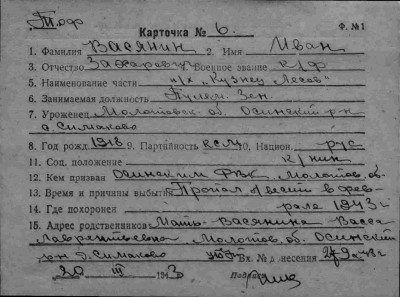 Т.оф
Карточка № 6. Ф. №1
1. Фамилия Васянин 2. Имя Иван
3. Отчество Захарович Военное звание к/ф
5. Наименование части п/х „Кузнец Лесов"
6. Занимаемая должность Пулем. Зен.
7. Уроженец Молотовск. об. Осинский р-н
д. Симаково
8. Год рожд. 1918 9. Партийность 10. Национ. рус
11. Соц. положение к/нин
12. Кем призван Осинским РВК Молотов. об.
13. Время и причины выбытия Пропал в/вести в фев-
14. Где похоронен рале 1943 г
15. Адрес родственников Мать Васянина Васса
Лаврентьевна Молотов. об. Осинский
д. Симаково Вх. № донесения
20 III 1943 Подпись